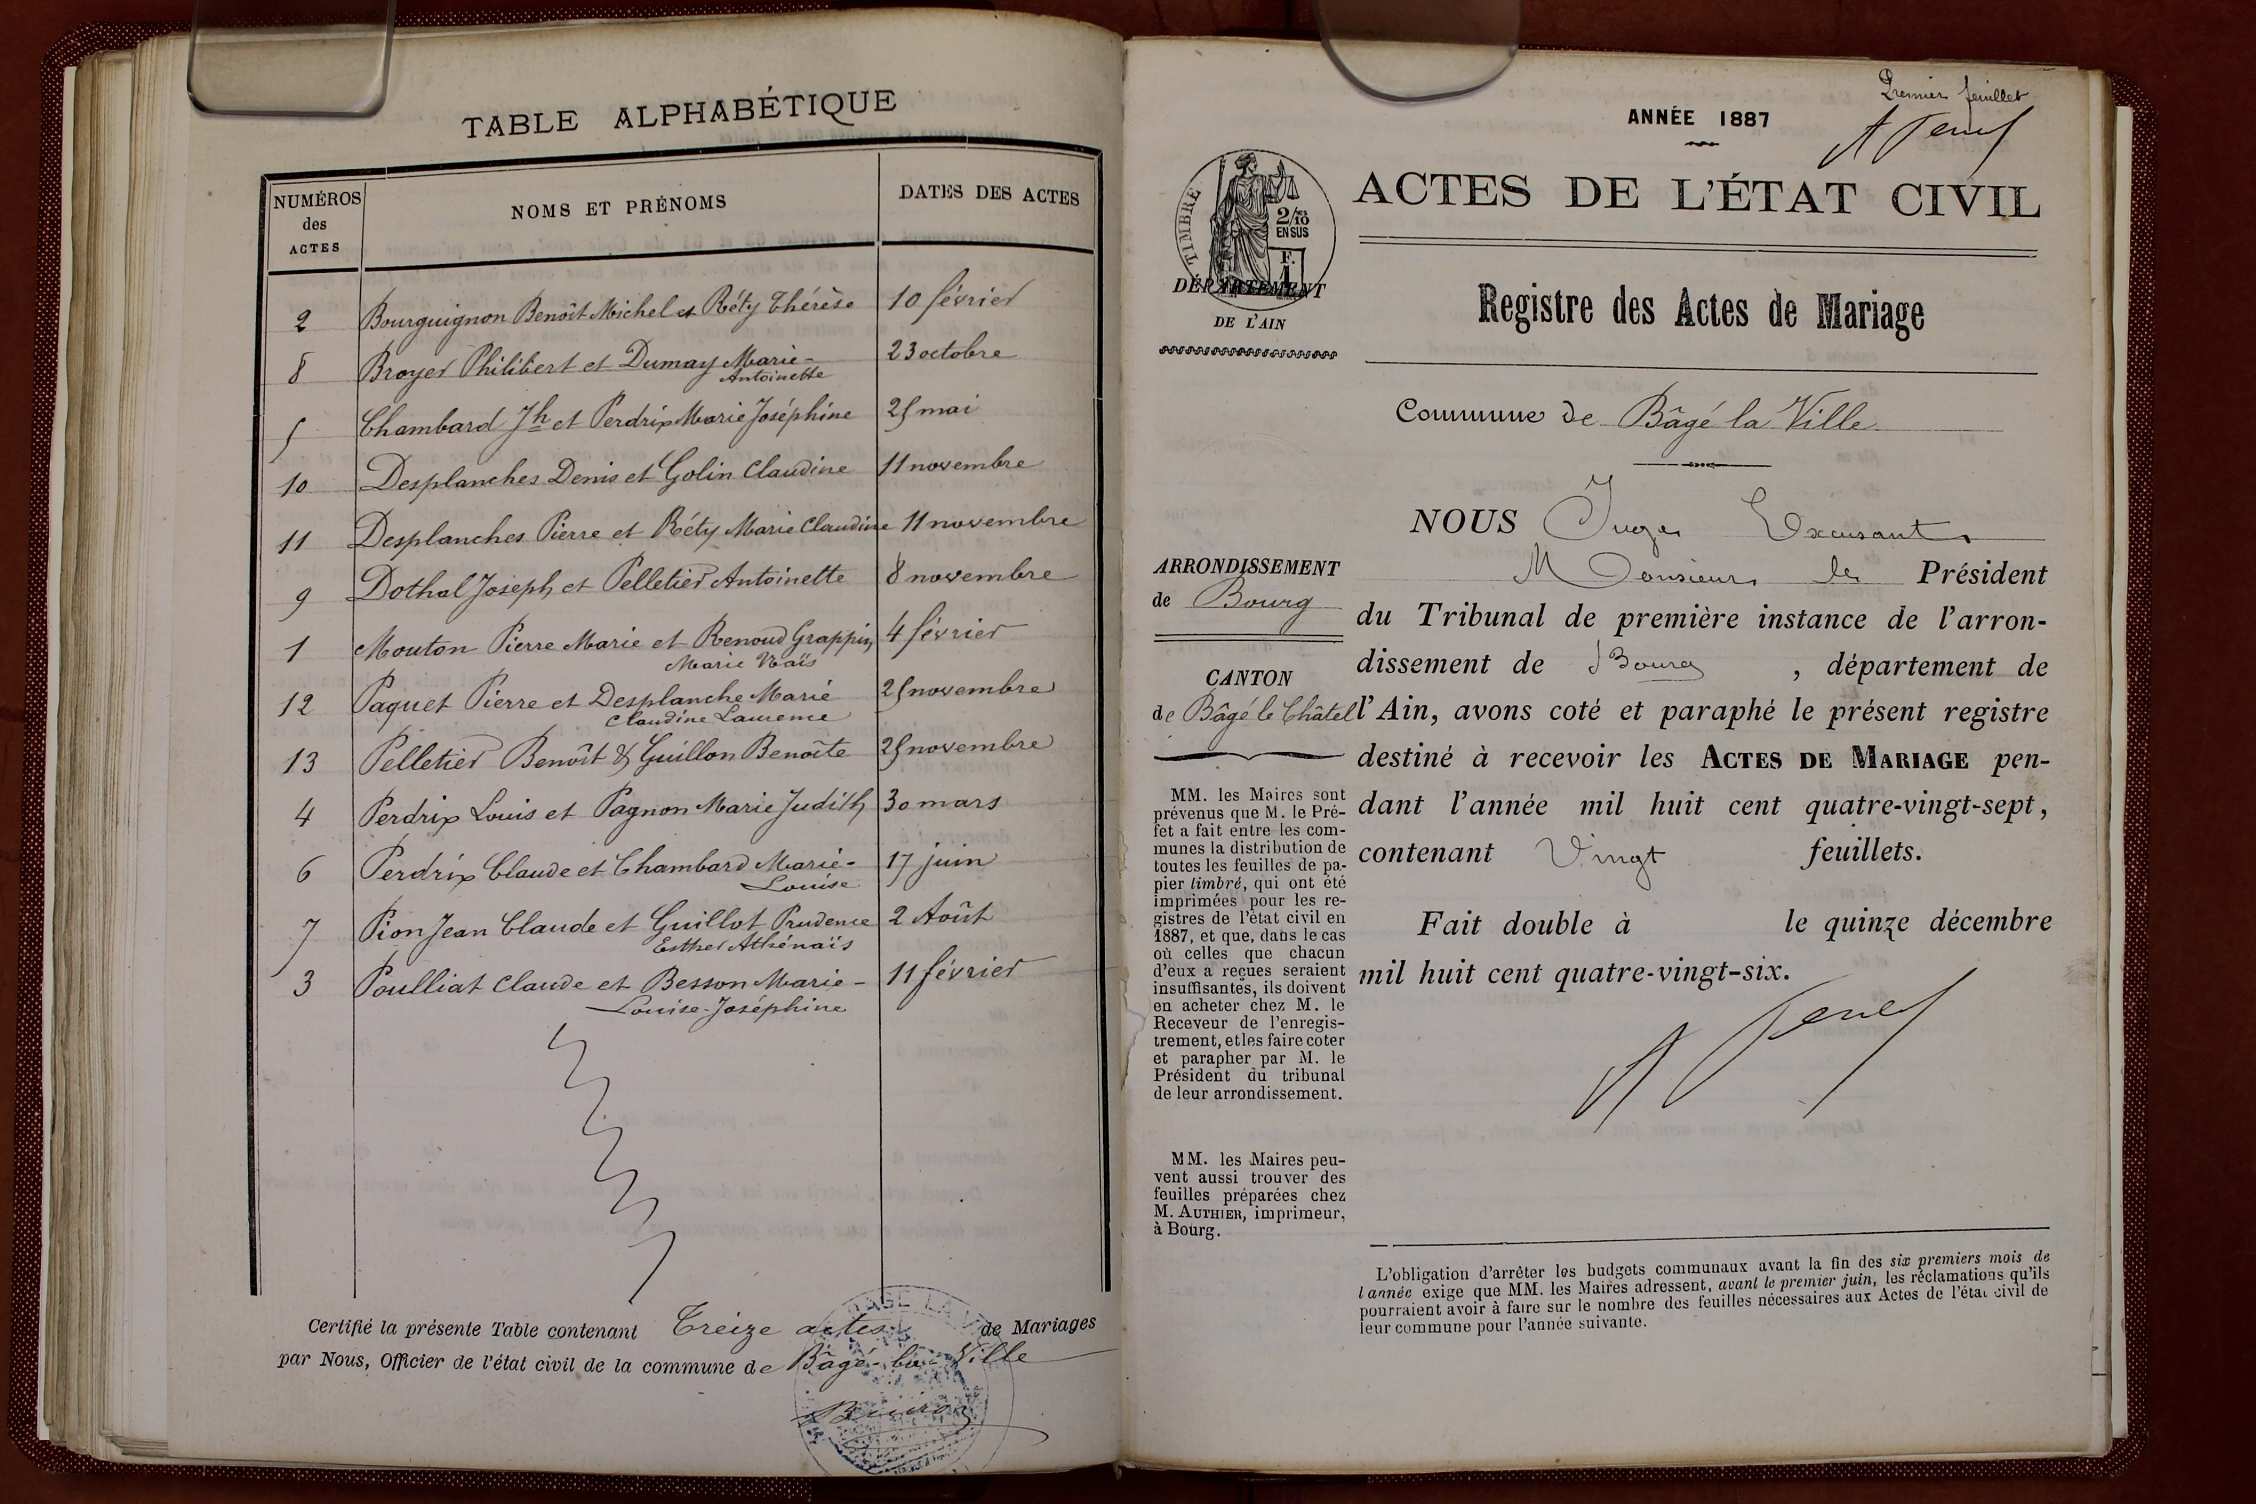 TABLE ALPHABÉTIQUE
NUMÉROS des ACTES
NOMS ET PRÉNOMS
DATES DES ACTES
2 Bourguignon Benoît Michel et Réty Thérèse 10 février
8 Broyer Philibert et Dumay Marie-
Antoinette 23 octobre
5 Chambard Jh et Perdrix Marie Joséphine 25 mai
10 Desplanches Denis et Golin Claudine 11 novembre
11 Desplanches Pierre et Réty Marie Claudine 11 novembre
9 Dothal Joseph et Pelletier Antoinette 8 novembre
1 Mouton Pierre Marie et Renoud Grappin
Marie Naïs 4 février
12 Paquet Pierre et Desplanche Marie
Claudine Laurence 25 novembre
13 Pelletier Benoît & Guillon Benoîte 25 novembre
4 Perdrix Louis et Pagnon Marie Judith 30 mars
6 Perdrix Claude et Chambard Marie-
Louise 17 juin
7 Pion Jean Claude et Guillot Prudence
Esther Athénaïs 2 Août
3 Poulliat Claude et Besson Marie-
Louise-Joséphine 11 février
Certifié la présente Table contenant Treize actes de Mariages
par Nous, Officier de l'état civil de la commune de Bâgé-la-Ville
Premier feuillet
ANNÉE 1887
TIMBRE
2/10
EN SUS
F.
1
ACTES DE L'ÉTAT CIVIL
DÉPARTEMENT
DE L'AIN
Registre des Actes de Mariage
Commune de Bâgé la Ville
ARRONDISSEMENT
de Bourg
CANTON
de Bâgé le Châtel
MM. les Maires sont
prévenus que M. le Pré-
fet a fait entre les com-
munes la distribution de
toutes les feuilles de pa-
pier timbré, qui ont été
imprimées pour les re-
gistres de l'état civil en
1887, et que, dans le cas
où celles que chacun
d'eux a reçues seraient
insuffisantes, ils doivent
en acheter chez M. le
Receveur de l'enregis-
trement, et les faire coter
et parapher par M. le
Président du tribunal
de leur arrondissement.
MM. les Maires peu-
vent aussi trouver des
feuilles préparées chez
M. AUTHIER, imprimeur,
à Bourg.
NOUS Juge Excusant
Monsieur le Président
du Tribunal de première instance de l'arron-
dissement de Bourg , département de
l'Ain, avons coté et paraphé le présent registre
destiné à recevoir les ACTES DE MARIAGE pen-
dant l'année mil huit cent quatre-vingt-sept,
contenant Vingt feuillets.
Fait double à le quinze décembre
mil huit cent quatre-vingt-six.
L'obligation d'arrêter les budgets communaux avant la fin des six premiers mois de
l'année exige que MM. les Maires adressent, avant le premier juin, les réclamations qu'ils
pourraient avoir à faire sur le nombre des feuilles nécessaires aux Actes de l'état civil de
leur commune pour l'année suivante.